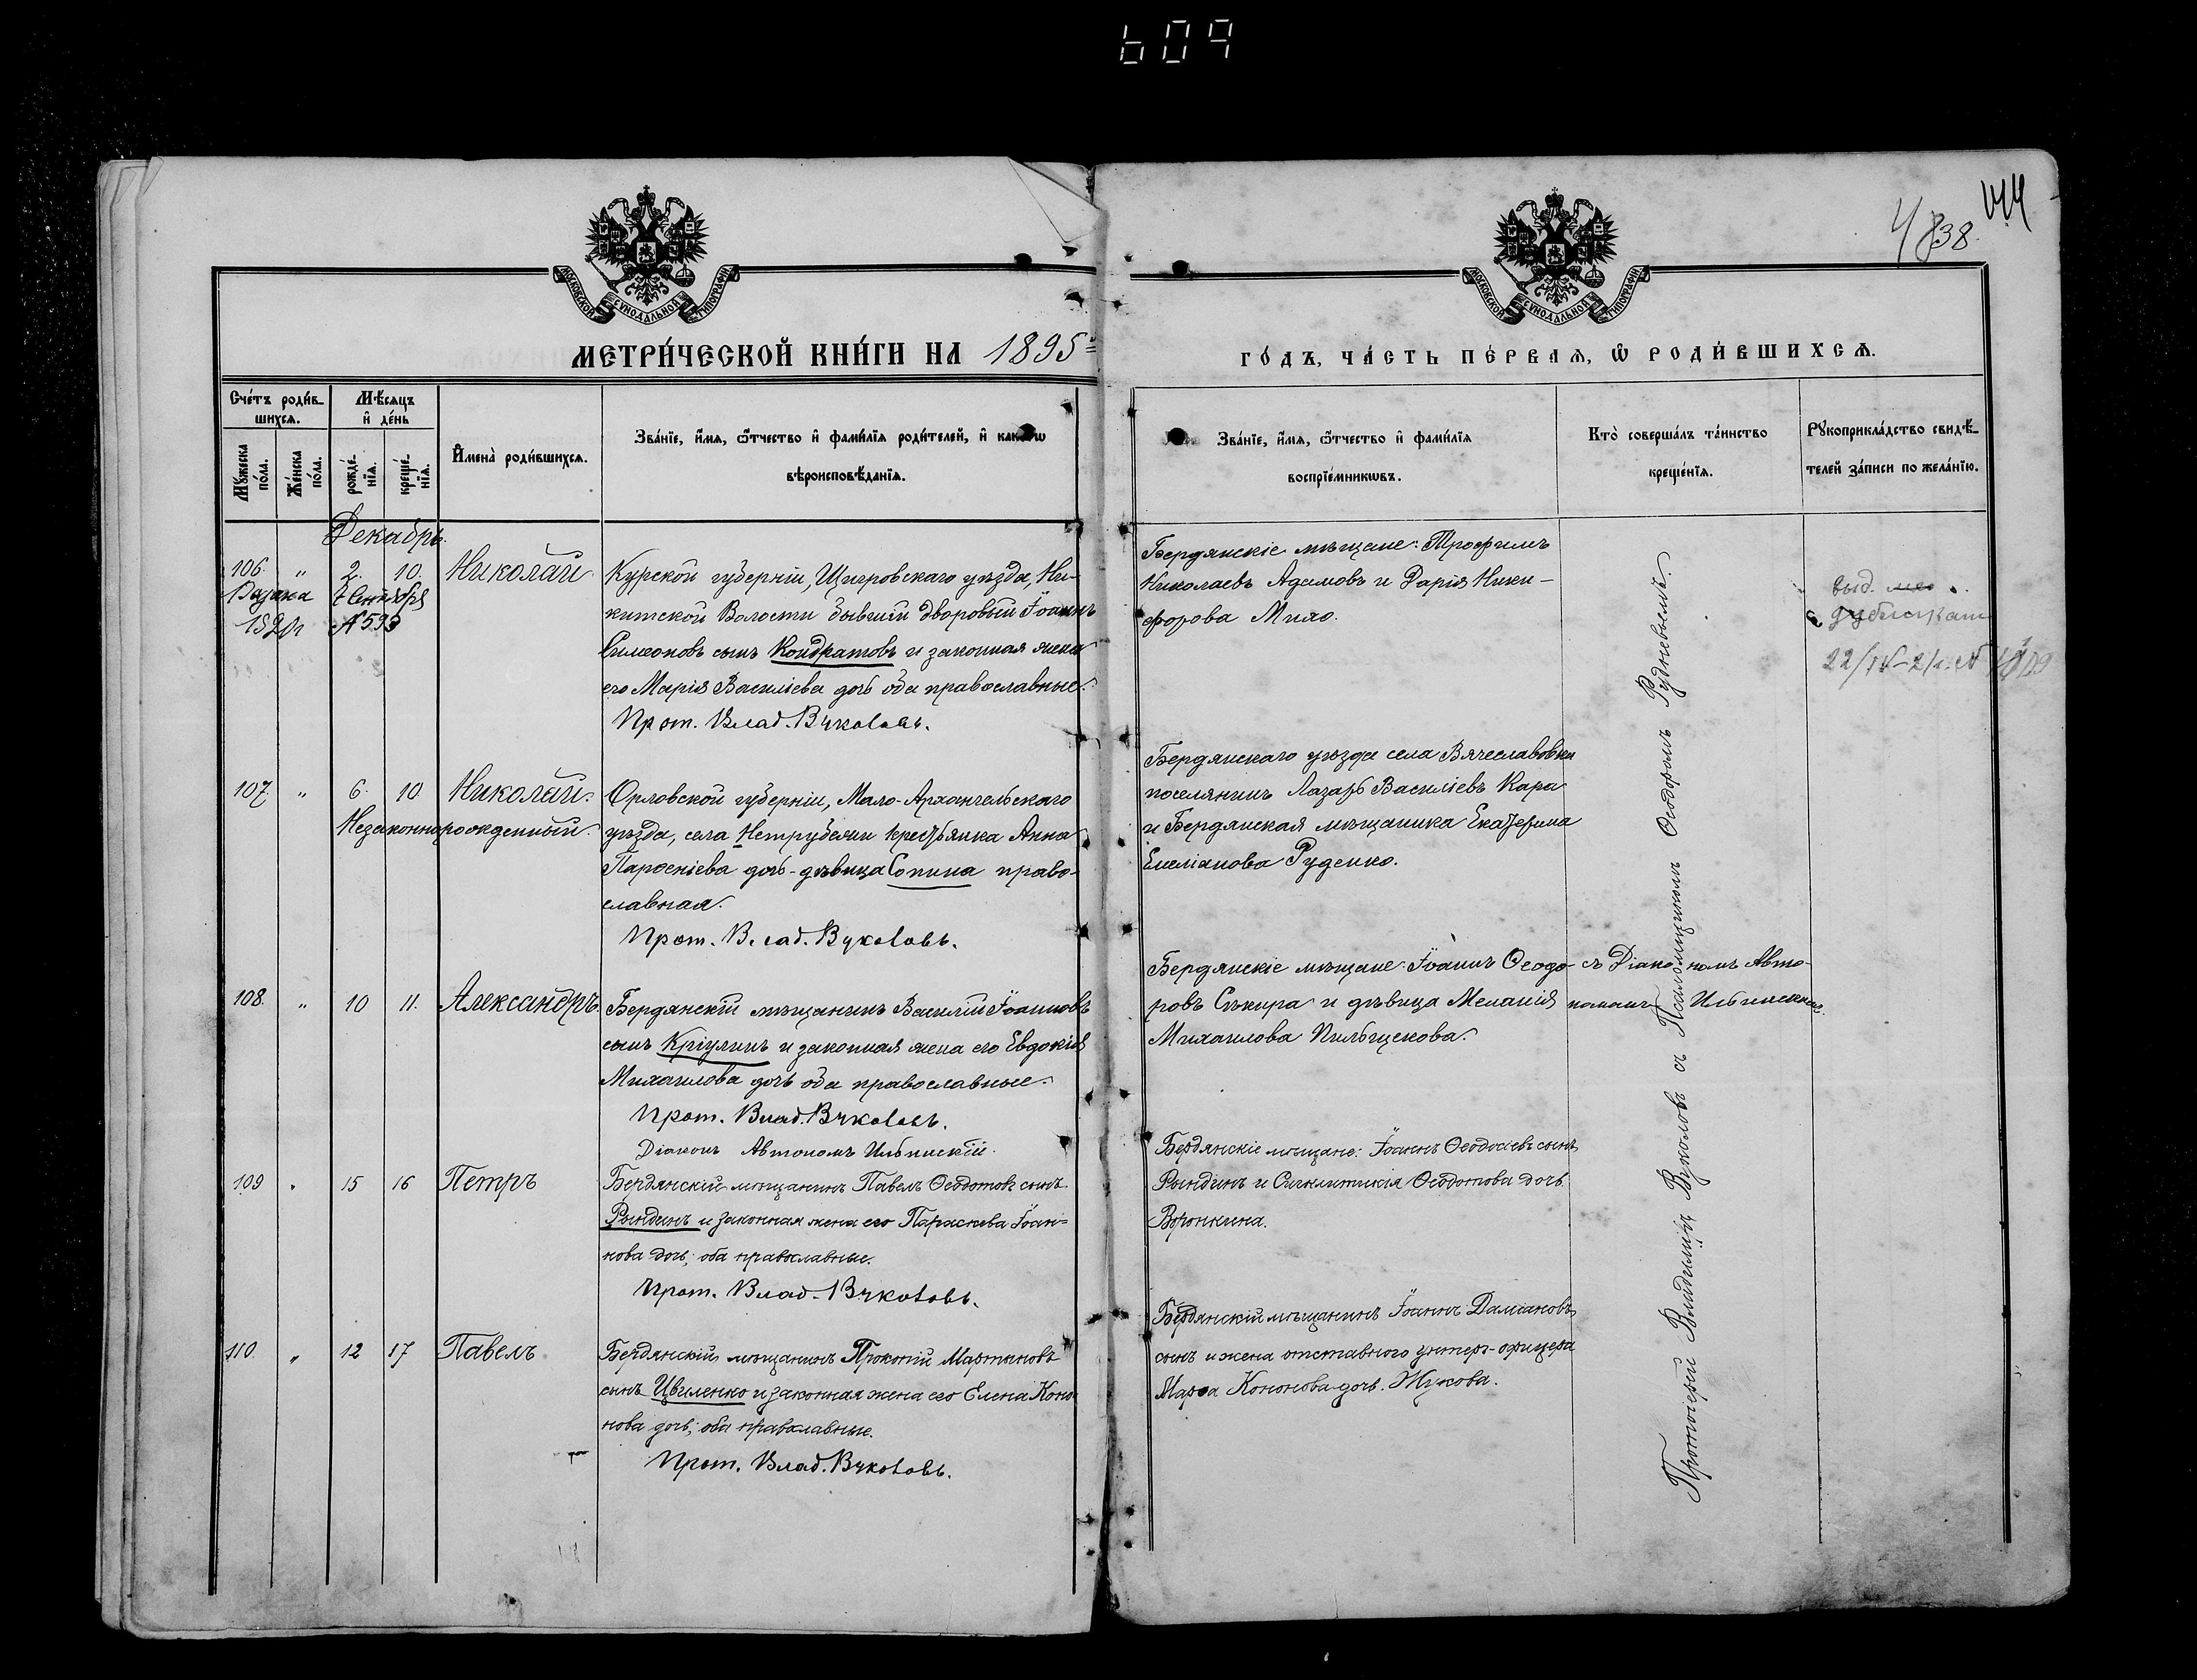 609
838
МОСКОВСКОЙ СѴНОДАЛЬНОЙ ТИПОГРАФІИ
МОСКОВСКОЙ СѴНОДАЛЬНОЙ ТИПОГРАФІИ
МЕТРИ́ЧЕСКОЙ КНИ́ГИ НА 1895
ГО́ДЪ, ЧА́СТЬ ПЕ́РВАѦ, Ѽ РОДИ́ВШИХСѦ.
Сче́тъ роди́в-
шихсѧ.
Мꙋ́жеска по́ла.
Же́нска по́ла.
Мѣ́сѧцъ
и҆ де́нь
рожде́-
нїѧ.
креще́-
нїѧ.
И҆мена̀ роди́вшихсѧ.
Зва́нїе, и҆́мѧ, ѻ҆́тчество и҆ фами́лїѧ роди́телей, и҆ како́гѡ
вѣроисповѣ́данїѧ.
Зва́нїе, и҆́мѧ, ѻ҆́тчество и҆ фами́лїѧ
воспрїе́мникѡвъ.
Кто̀ соверша́лъ та́инство
креще́нїѧ.
Рꙋкоприкла́дство свидѣ́-
телей за́писи по жела́нїю.
Декабрь.
106. " 2. 10. Николай
Курской губерніи, Щигровскаго уѣзда, Ни-
китской Волости бывшій дворовый Іоаннъ
Симеоновъ сынъ Кондратовъ и законная жена
его Марія Василіева дочь оба православные.
Прот. Влад. Вуколовъ.
Бердянскіе мѣщане: Трофимъ
Николаевъ Адамовъ и Дарія Ники-
форова Мило.
выд.
107. " 6. 10 Николай.
Незаконнорожденный.
Орловской губерніи, Мало-Архангельскаго
уѣзда, села Нетрубежи крестьянка Анна
Парѳеніева дочь-дѣвица Сопина право-
славная.
Прот. Влад. Вуколовъ.
Бердянскаго уѣзда села Вячеславовки
поселянинъ Лазарь Василіевъ Кара
и Бердянская мѣщанка Екатерина
Емеліанова Руденко.
108. " 10 11. Александръ.
Бердянскій мѣщанинъ Василій Іоанновъ
сынъ Кріулинъ и законная жена его Евдокія
Михаилова дочь оба православные.
Прот. Влад. Вуколовъ.
Діаконъ Автономъ Ильинскій.
Бердянскіе мѣщане: Іоаннъ Ѳеодо-
ровъ Сѣкира и дѣвица Меланія
Михаилова Пильщекова.
съ Діакономъ Авто-
номомъ Ильинскимъ.
109 " 15 16 Петръ
Бердянскій мѣщанинъ Павелъ Ѳеодотовъ сынъ
Рындинъ и законная жена его Параскева Іоан-
нова дочь; оба православные.
Прот. Влад. Вуколовъ.
Бердянскіе мѣщане: Іоаннъ Ѳеодосіевъ сынъ
Рындинъ и Сигклитикія Ѳеодотова дочь
Воронкина.
110. " 12 17 Павелъ
Бердянскій мѣщанинъ Прокопій Мартиновъ
сынъ Цвиленко и законная жена его Елена Коно-
нова дочь; оба православные.
Прот. Влад. Вуколовъ.
Бердянскій мѣщанинъ Іоаннъ Даміановъ
сынъ и жена отставного унтеръ-офицера
Марѳа Кононова дочь. Жукова.
Протоіерей Владиміръ Вуколовъ съ Псаломщикомъ Ѳеодоромъ Рудневымъ.